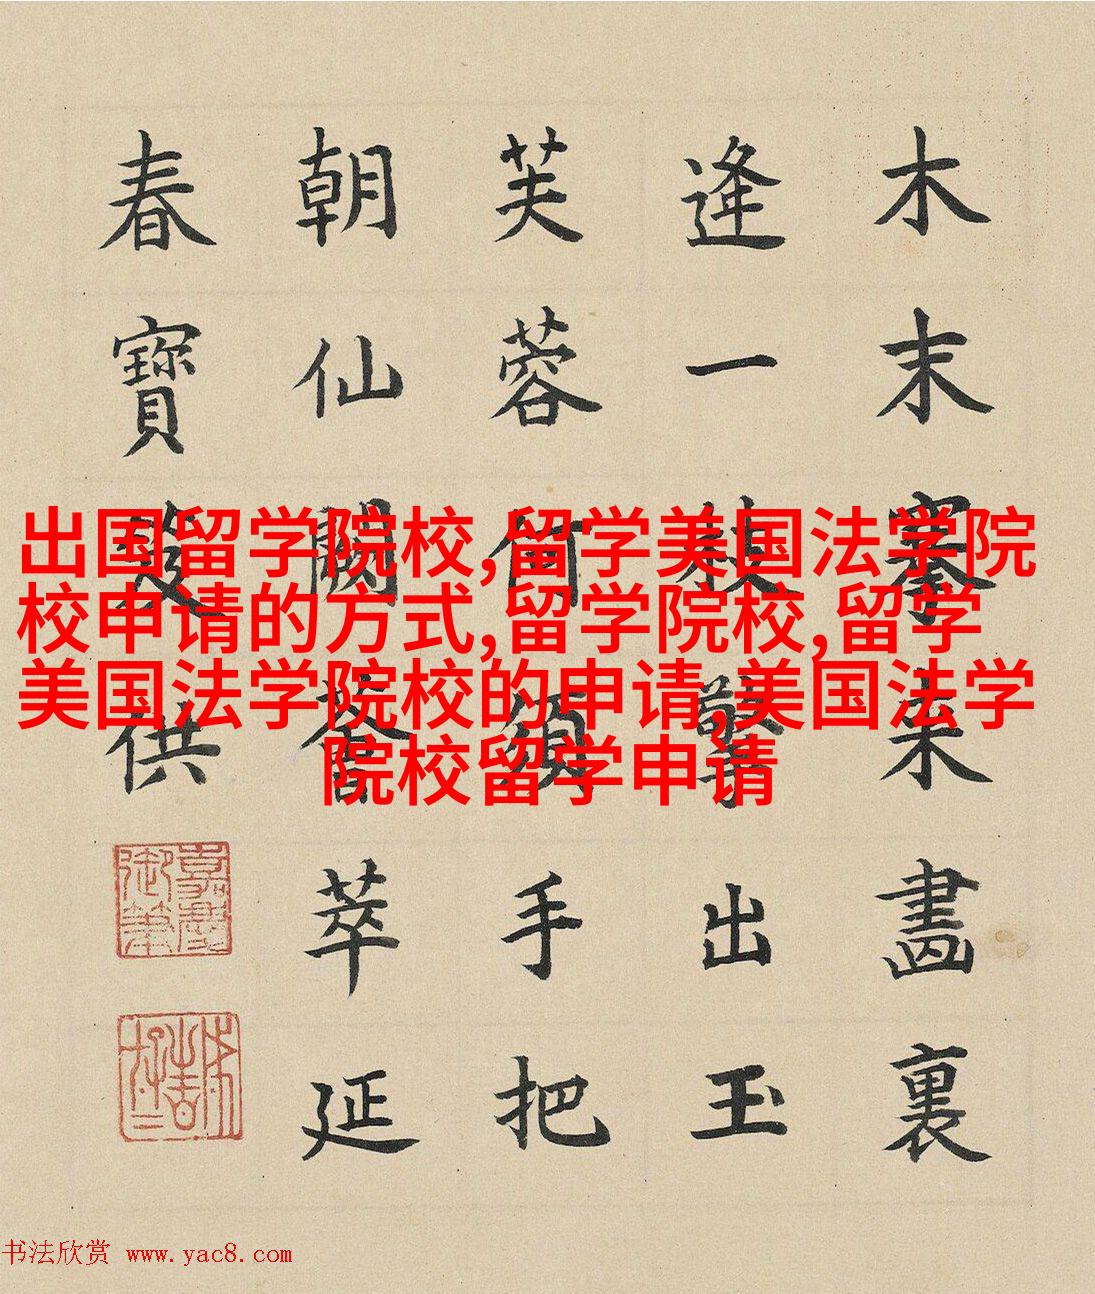 木末搴來畫裏
逢一枝擎出玉
芙蓉何須手把
朝仙闕薈萃延
春寶笈供
嘉慶御筆
出国留学院校,留学美国法学院
校申请的方式,留学院校,留学
美国法学院校的申请,美国法学
院校留学申请
书法欣赏 www.yac8.com